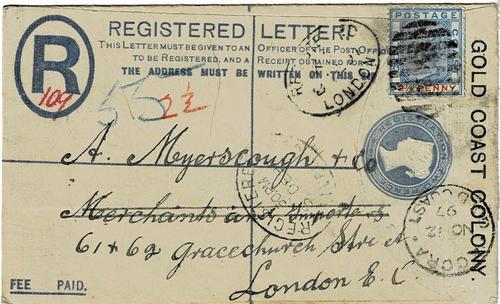 REGISTERED LETTER
THIS LETTER MUST BE GIVEN TO AN OFFICER OF THE POST OFFICE
TO BE REGISTERED, AND A RECEIPT OBTAINED FOR IT
THE ADDRESS MUST BE WRITTEN ON THIS
R
109
55
2½
LONDON
POSTAGE
2½ PENNY
GOLD COAST COLONY
REGISTRATION TWO PENCE
REGISTERED
A. Myerscough & Co
Merchants and Importers
61 & 62 Gracechurch Street
London E.C
GOLD COAST
97
FEE PAID.